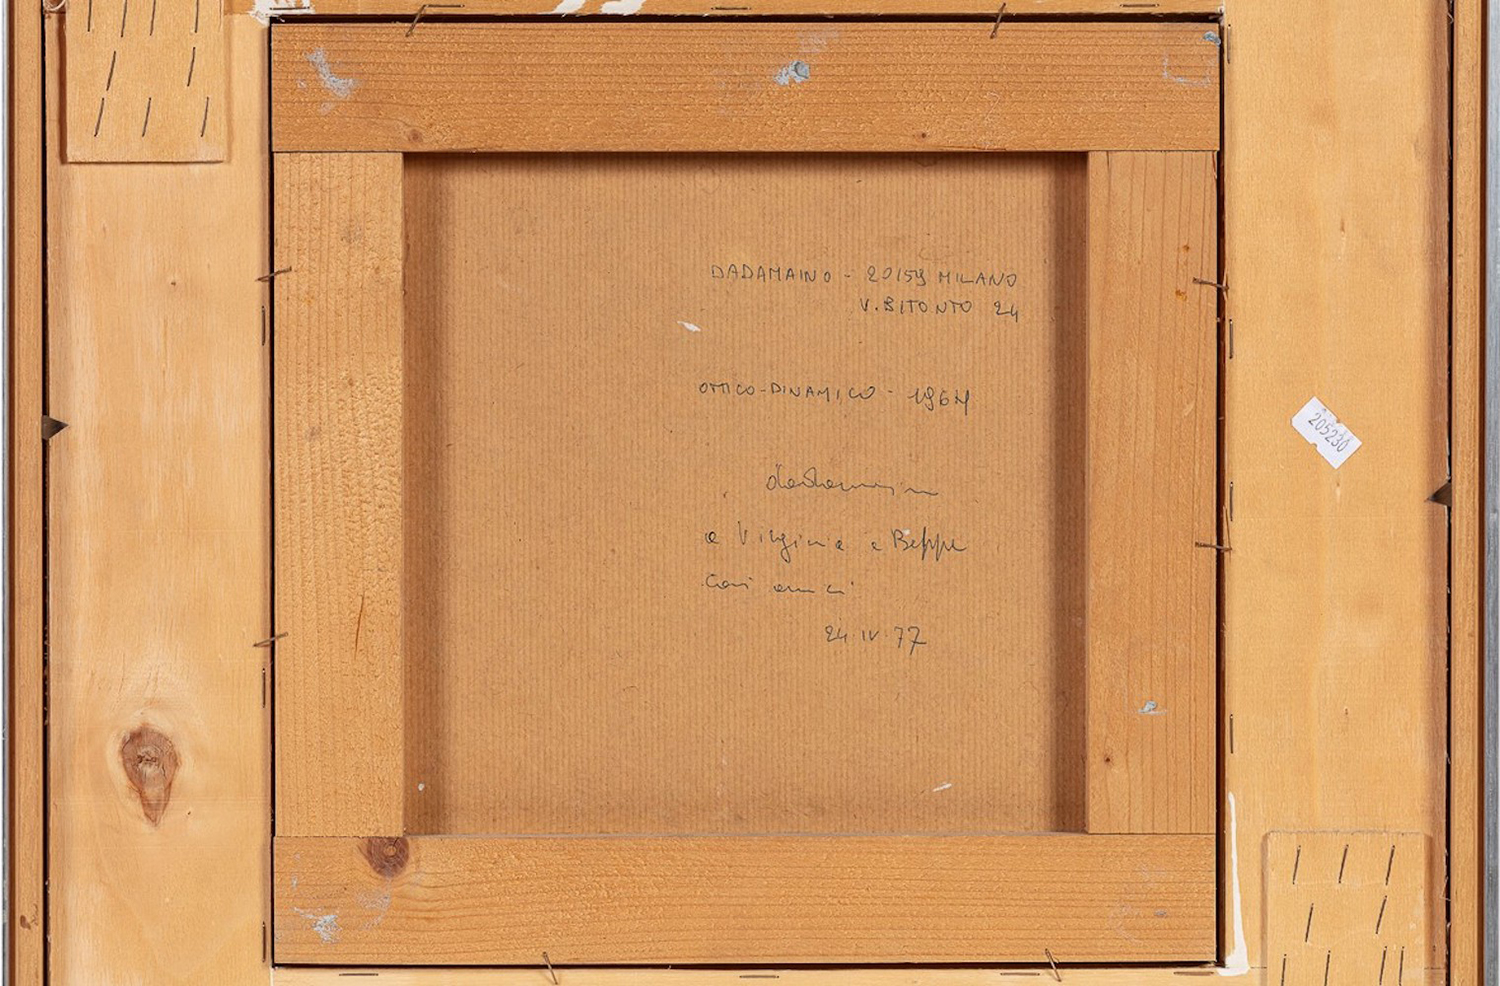 DADAMAINO - 20159 MILANO
V. BITONTO 24
OTTICO-DINAMICO - 1964
dadamaino
a Virginia e Beppe
cari amici
24.IV.77
205230